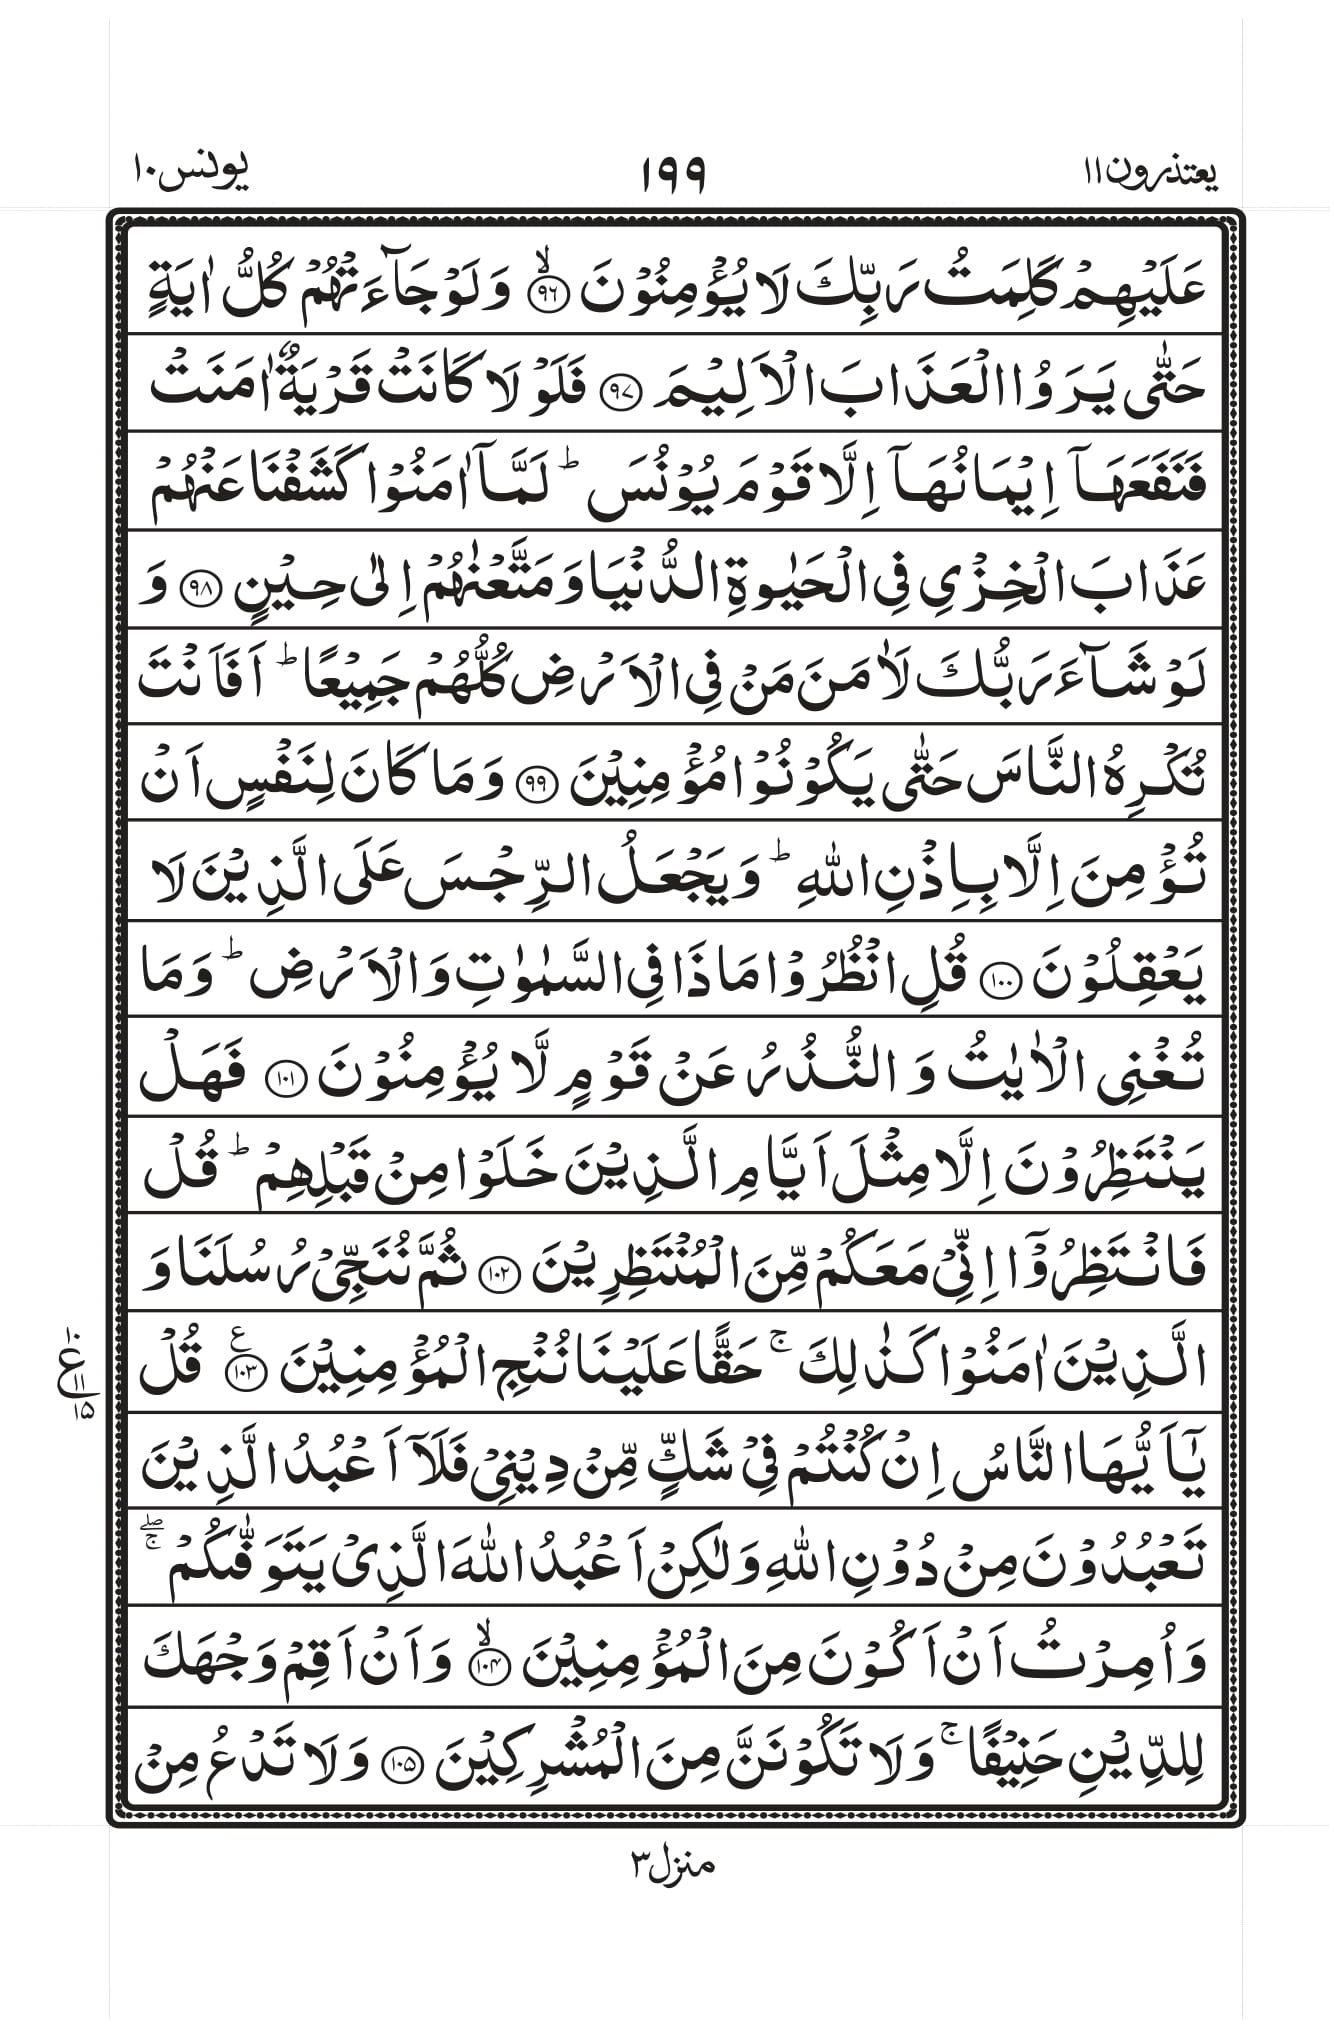 يعتذرون ١١
١٩٩
يونس ١٠
عَلَيْهِمْ كَلِمَتُ رَبِّكَ لَا يُؤْمِنُوْنَ ۙ﴿٩٦﴾ وَلَوْ جَآءَتْهُمْ كُلُّ اٰيَةٍ
حَتّٰى يَرَوُا الْعَذَابَ الْاَلِيْمَ ﴿٩٧﴾ فَلَوْ لَا كَانَتْ قَرْيَةٌ اٰمَنَتْ
فَنَفَعَهَاۤ اِيْمَانُهَاۤ اِلَّا قَوْمَ يُوْنُسَ ؕ لَمَّاۤ اٰمَنُوْا كَشَفْنَا عَنْهُمْ
عَذَابَ الْخِزْيِ فِى الْحَيٰوةِ الدُّنْيَا وَمَتَّعْنٰهُمْ اِلٰى حِيْنٍ ﴿٩٨﴾ وَ
لَوْ شَآءَ رَبُّكَ لَاٰمَنَ مَنْ فِى الْاَرْضِ كُلُّهُمْ جَمِيْعًا ؕ اَفَاَنْتَ
تُكْرِهُ النَّاسَ حَتّٰى يَكُوْنُوْا مُؤْمِنِيْنَ ﴿٩٩﴾ وَمَا كَانَ لِنَفْسٍ اَنْ
تُؤْمِنَ اِلَّا بِاِذْنِ اللّٰهِ ؕ وَيَجْعَلُ الرِّجْسَ عَلَى الَّذِيْنَ لَا
يَعْقِلُوْنَ ﴿١٠٠﴾ قُلِ انْظُرُوْا مَاذَا فِى السَّمٰوٰتِ وَالْاَرْضِ ؕ وَمَا
تُغْنِى الْاٰيٰتُ وَ النُّذُرُ عَنْ قَوْمٍ لَّا يُؤْمِنُوْنَ ﴿١٠١﴾ فَهَلْ
يَنْتَظِرُوْنَ اِلَّا مِثْلَ اَيَّامِ الَّذِيْنَ خَلَوْا مِنْ قَبْلِهِمْ ؕ قُلْ
فَانْتَظِرُوْۤا اِنِّىْ مَعَكُمْ مِّنَ الْمُنْتَظِرِيْنَ ﴿١٠٢﴾ ثُمَّ نُنَجِّىْ رُسُلَنَا وَ
الَّذِيْنَ اٰمَنُوْا كَذٰلِكَ ۚ حَقًّا عَلَيْنَا نُنْجِ الْمُؤْمِنِيْنَ ﴿١٠٣﴾ع قُلْ
١٠
ع
١١
١٥
يٰۤاَيُّهَا النَّاسُ اِنْ كُنْتُمْ فِىْ شَكٍّ مِّنْ دِيْنِىْ فَلَاۤ اَعْبُدُ الَّذِيْنَ
تَعْبُدُوْنَ مِنْ دُوْنِ اللّٰهِ وَلٰكِنْ اَعْبُدُ اللّٰهَ الَّذِىْ يَتَوَفّٰىكُمْ ۖۚ
وَاُمِرْتُ اَنْ اَكُوْنَ مِنَ الْمُؤْمِنِيْنَ ۙ﴿١٠٤﴾ وَاَنْ اَقِمْ وَجْهَكَ
لِلدِّيْنِ حَنِيْفًا ۚ وَلَا تَكُوْنَنَّ مِنَ الْمُشْرِكِيْنَ ﴿١٠٥﴾ وَلَا تَدْعُ مِنْ
منزل ٣